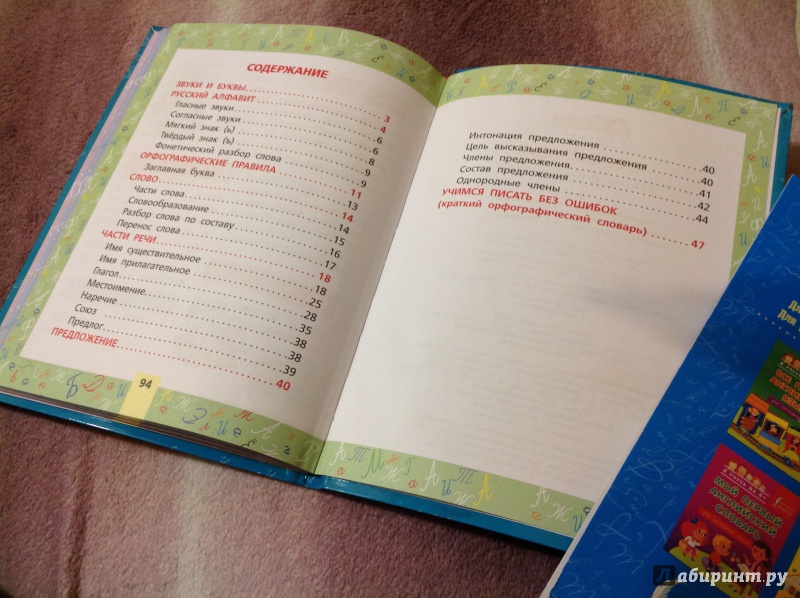 СОДЕРЖАНИЕ
ЗВУКИ И БУКВЫ 3
РУССКИЙ АЛФАВИТ 4
Гласные звуки 6
Согласные звуки 6
Мягкий знак (ь) 8
Твёрдый знак (ъ) 9
Фонетический разбор слова 9
ОРФОГРАФИЧЕСКИЕ ПРАВИЛА 11
Заглавная буква 13
СЛОВО 14
Части слова 14
Словообразование 15
Разбор слова по составу 16
Перенос слова 17
ЧАСТИ РЕЧИ 18
Имя существительное 18
Имя прилагательное 25
Глагол 28
Местоимение 35
Наречие 38
Союз 38
Предлог 39
ПРЕДЛОЖЕНИЕ 40
94
Интонация предложения 40
Цель высказывания предложения 40
Члены предложения 41
Состав предложения 42
Однородные члены 44
УЧИМСЯ ПИСАТЬ БЕЗ ОШИБОК
(краткий орфографический словарь) 47
Для
МОЙ ПЕРВЫЙ
АНГЛИЙСКИЙ
СЛОВАРЬ
Лабиринт.ру